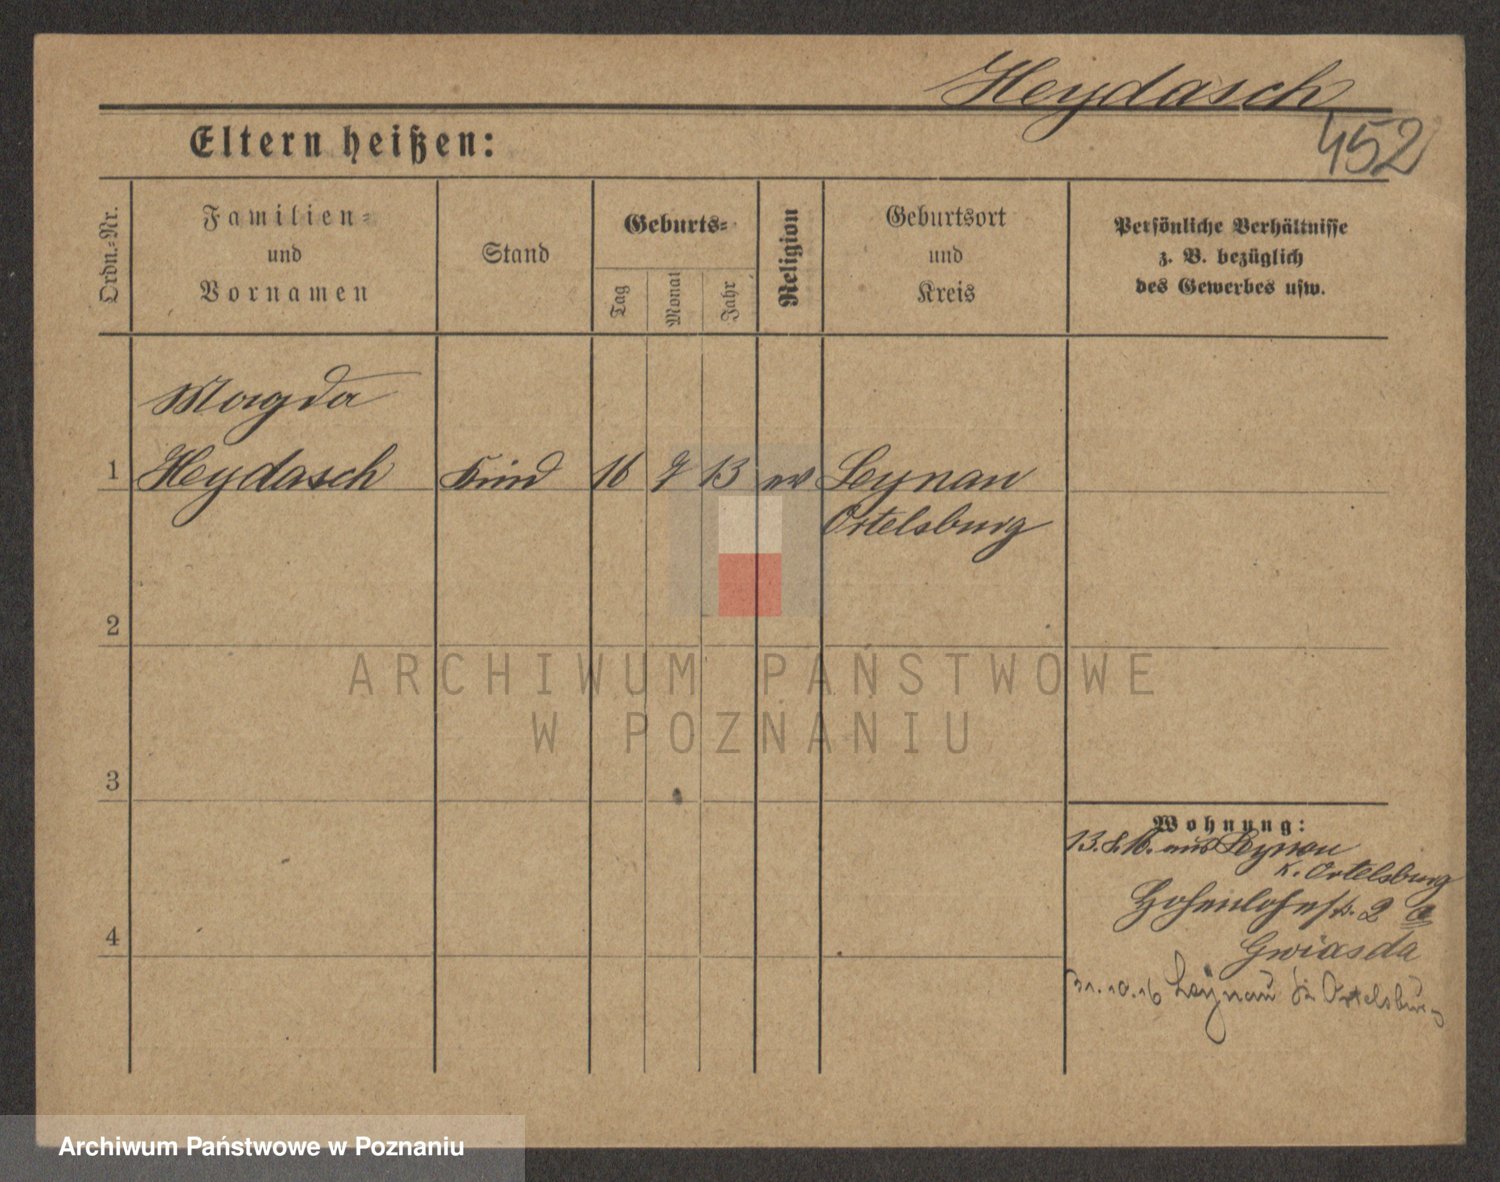 Heydasch
452
Eltern heißen:
Ordn.-Nr.
Familien-
und
Vornamen
Stand
Geburts-
Tag
Monat
Jahr
Religion
Geburtsort
und
Kreis
Persönliche Verhältnisse
z. B. bezüglich
des Gewerbes usw.
Magda
1 Heydasch Kind 16 9 13 ev Leynau
Ortelsburg
2
3
4
Wohnung:
13. 8. 16. aus Leynau
K. Ortelsburg
Hohenlohestr. 2 a
Gwiasda
31.10.16 Leynau Kr Ortelsburg
ARCHIWUM PAŃSTWOWE
W POZNANIU
Archiwum Państwowe w Poznaniu